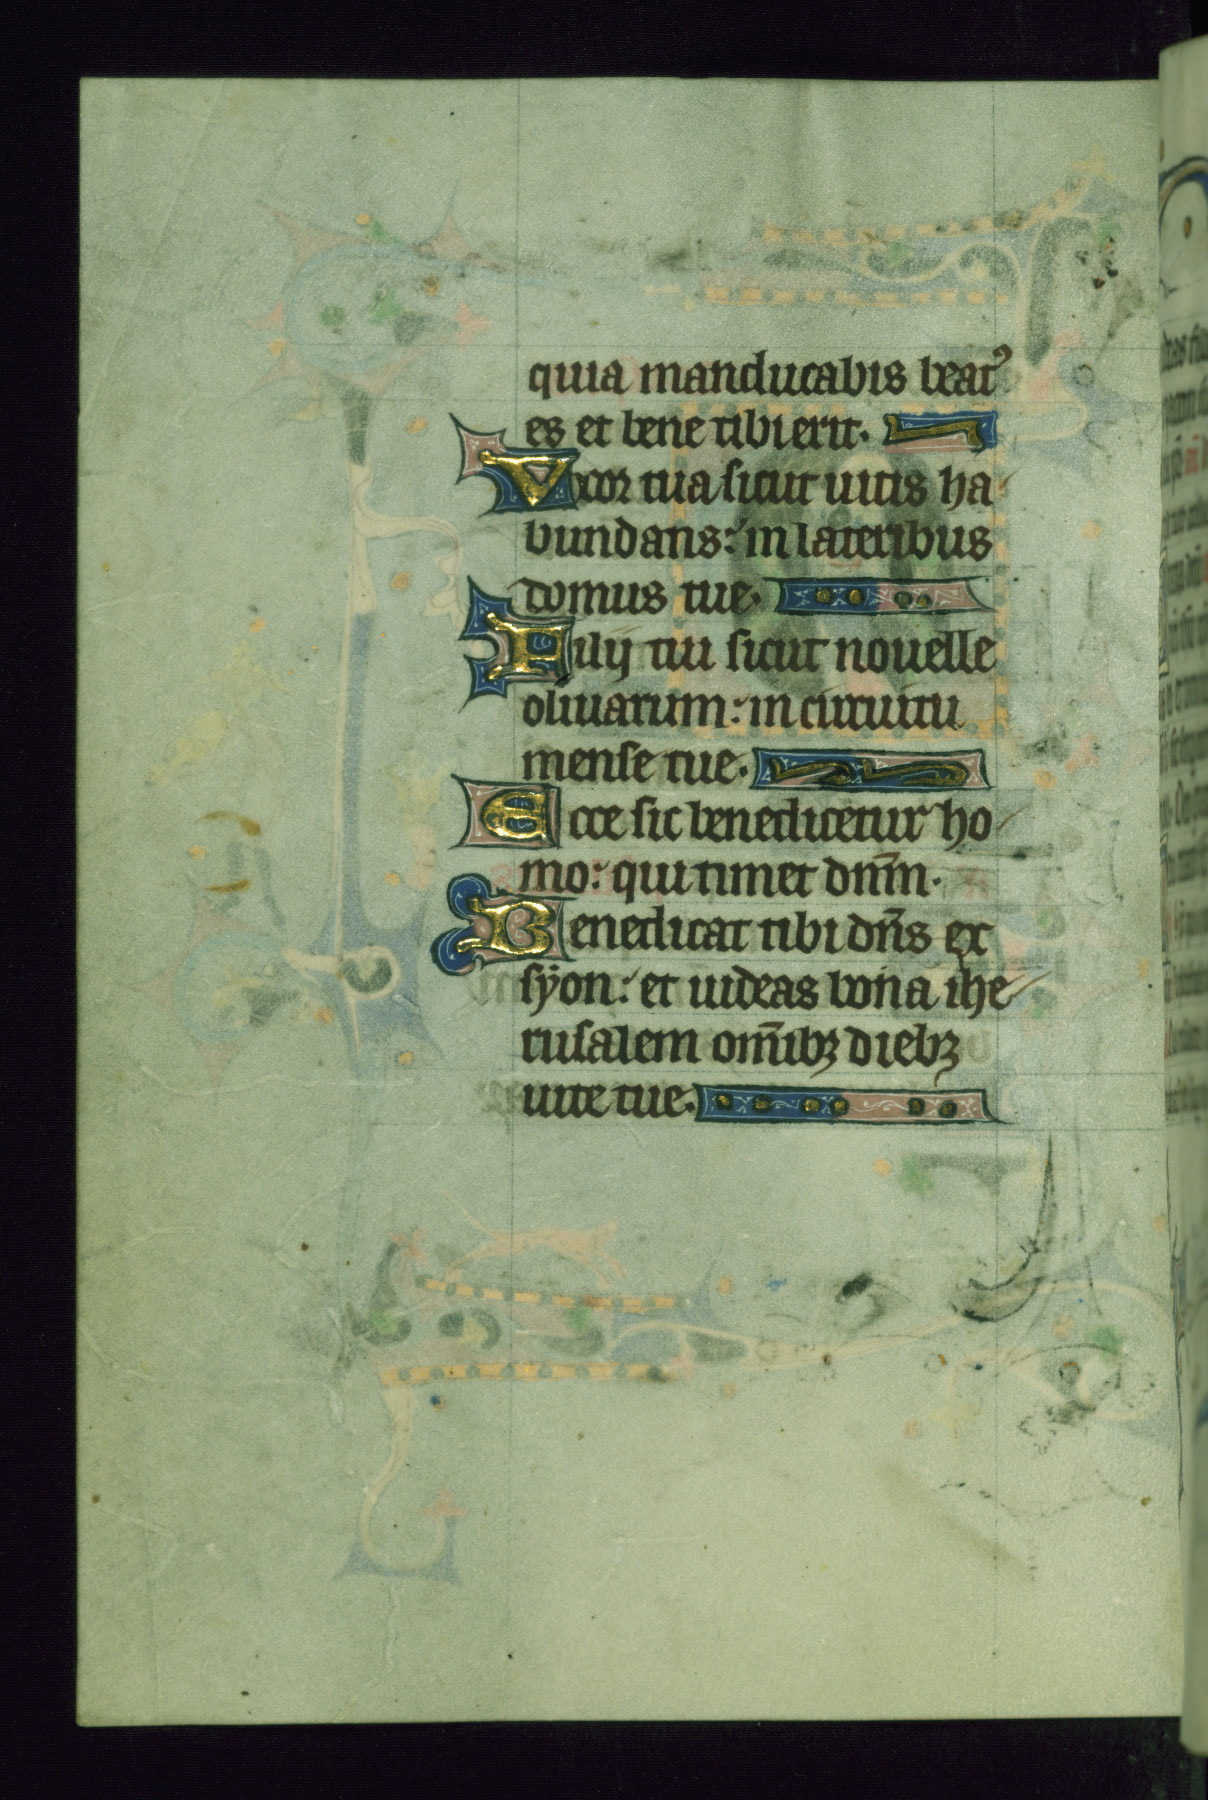 quia manducabis beatꝰ
es et bene tibi erit.
Vxor tua sicut uitis ha
bundans: in lateribus
domus tue.
Filij tui sicut nouelle
oliuarum: in circuitu
mense tue.
Ecce sic benedicetur ho
mo: qui timet dn̄m.
Benedicat tibi dn̄s ex
syon: et uideas bona ihe
rusalem om̄ibꝫ diebꝫ
uite tue.